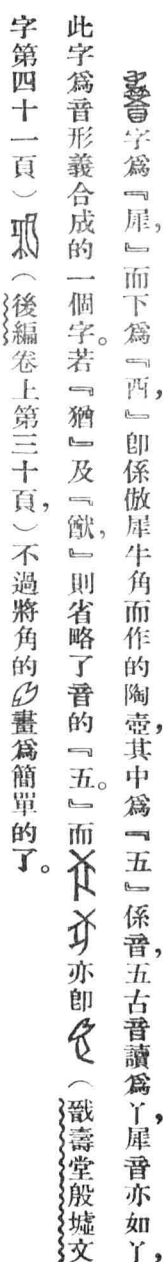 字爲『犀』而下爲『酉』卽係倣犀牛角而作的陶壺，其中爲『五』係音，五古音讀爲丫，犀音亦如丫，
此字爲音形義合成的一個字。若『猶』及『猷』則省略了音的『五』。而亦卽（戩壽堂殷墟文
字第四十一頁）（後編卷上第三十頁，）不過將角的畫爲簡單的了。